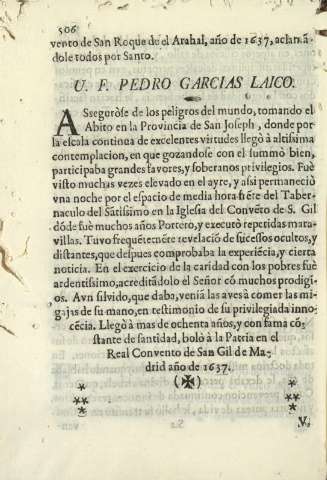 506
vento de San Roque de el Arahal, año de 1637, aclamã-
dole todos por Santo.
V. F. PEDRO GARCIAS LAICO.
ASseguròse de los peligros del mundo, tomando el
Abito en la Provincia de San Joseph, donde por
la escala continua de excelentes virtudes llegò à altissima
contemplacion, en que gozandose con el summò bien,
participaba grandes favores, y soberanos privilegios. Fuè
visto muchas vezes elevado en el ayre, y assi permaneciò
vna noche por el espacio de media hora frẽte del Taber-
naculo del Sãtissimo en la Iglesia del Convẽto de S. Gil
dõde fuè muchos años Portero, y executò repetidas mara-
villas. Tuvo frequẽtemẽte revelaciõ de sucessos ocultos, y
distantes, que despues comprobaba la experiẽcia, y cierta
noticia. En el exercicio de la caridad con los pobres fuè
ardentissimo, acreditãdolo el Señor cõ muchos prodigi-
os. A vn silvido, que daba, venìa las aves à comer las mi-
gajas de su mano, en testimonio de su privilegiada inno-
cẽcia. Llegò à mas de ochenta años, y con fama cõs-
tante de santidad, bolò à la Patria en el
Real Convento de San Gil de Ma-
drid año de 1637.
(✠)
V.